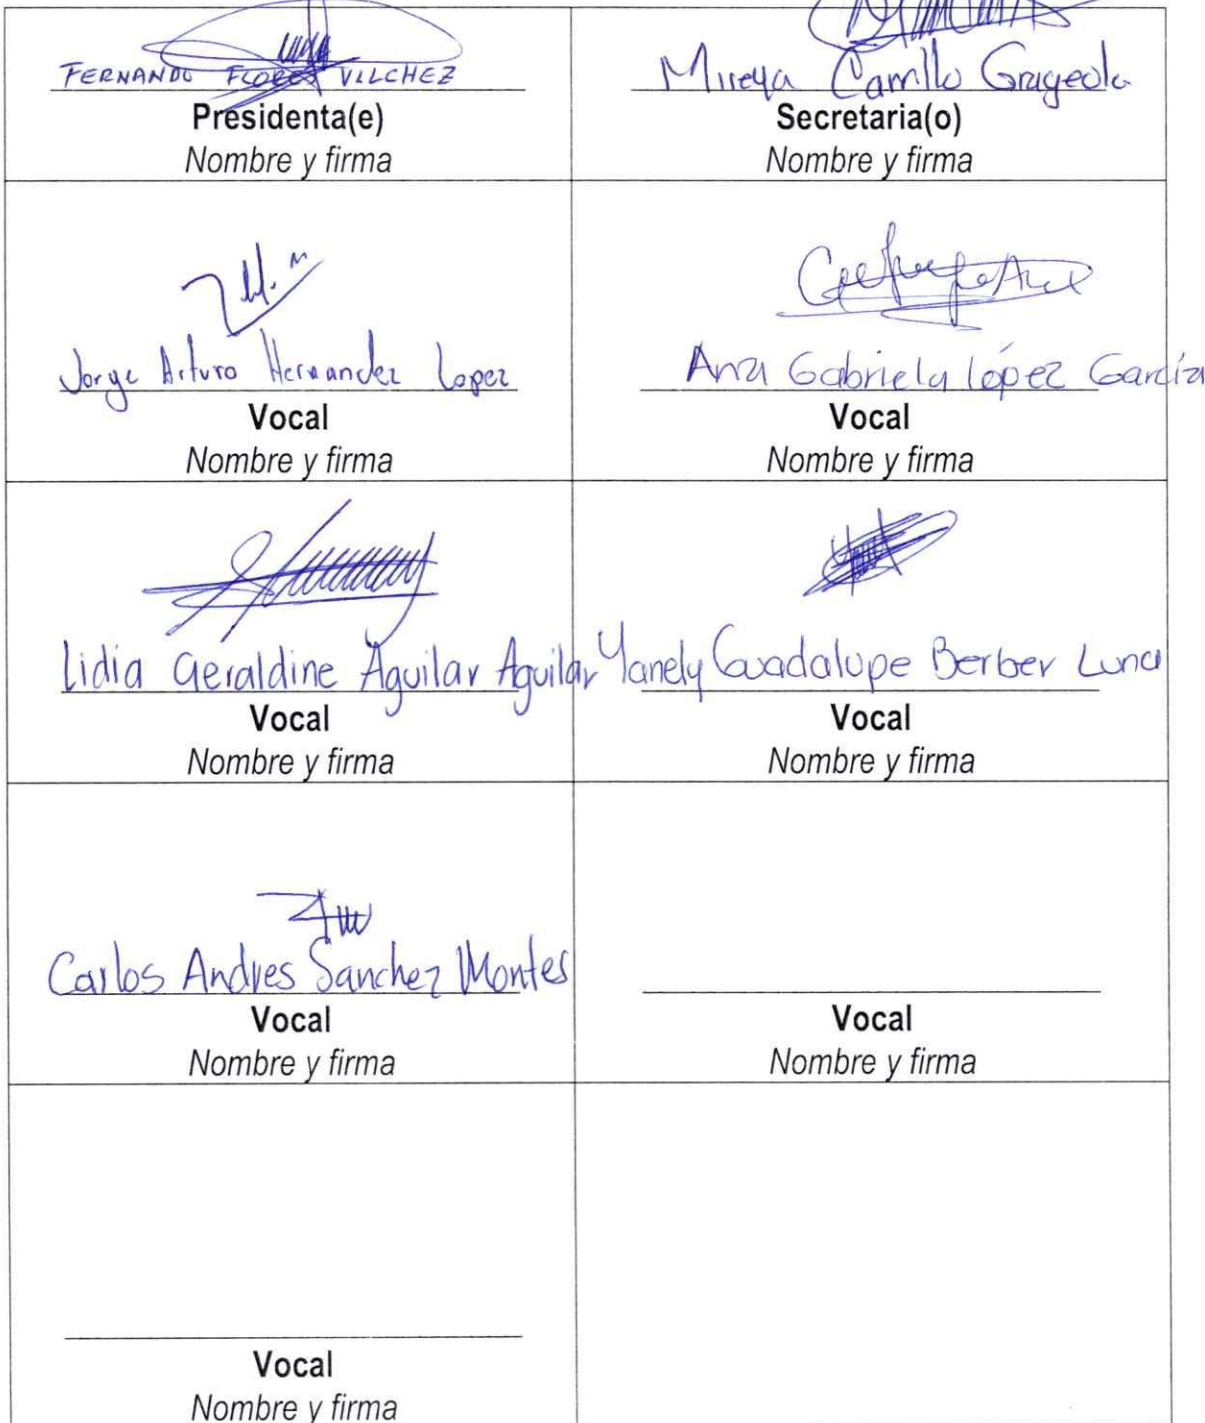 FERNANDO FLORES VILCHEZ
Presidenta(e)
Nombre y firma
Mireya Carrillo Grageola
Secretaria(o)
Nombre y firma
Jorge Arturo Hernandez Lopez
Vocal
Nombre y firma
Ana Gabriela lópez García
Vocal
Nombre y firma
Lidia Geraldine Aguilar Aguilar
Vocal
Nombre y firma
Yanely Guadalupe Berber Luna
Vocal
Nombre y firma
Carlos Andres Sanchez Montes
Vocal
Nombre y firma
Vocal
Nombre y firma
Vocal
Nombre y firma